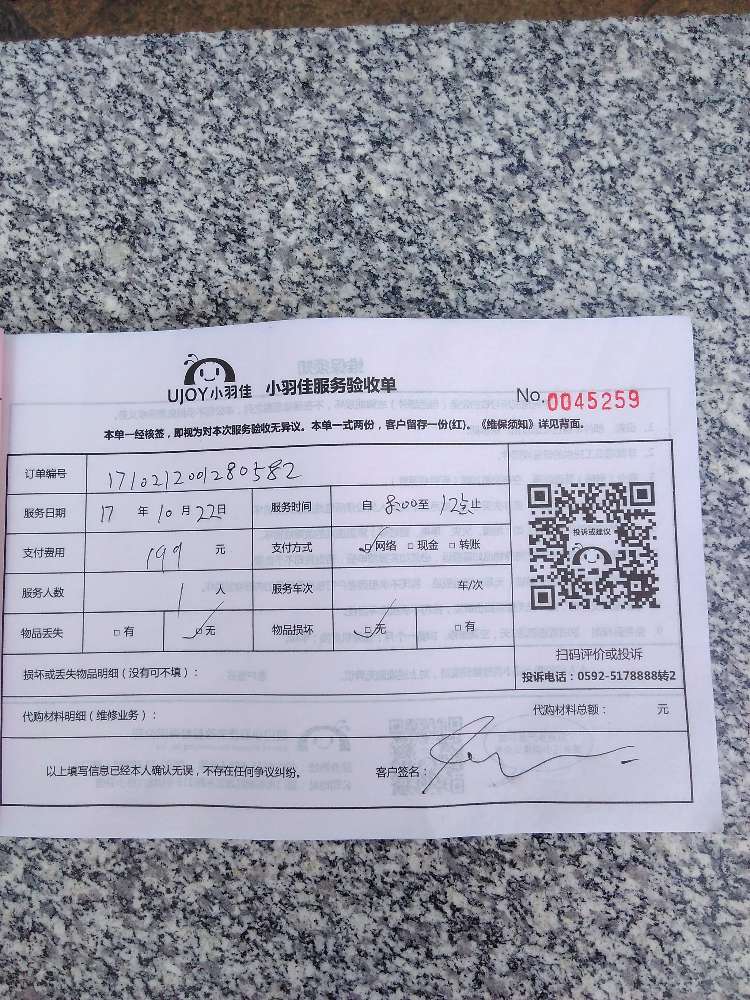 UJOY小羽佳 小羽佳服务验收单
No.0045259
本单一经核签，即视为对本次服务验收无异议。本单一式两份，客户留存一份(红)。《维保须知》详见背面。
订单编号 171021200280582
服务日期 17 年 10 月 22 日 服务时间 自 8:00 至 12点 止
支付费用 199 元 支付方式 ☑网络 □现金 □转账
服务人数 1 人 服务车次 车/次
物品丢失 □有 ☑无 物品损坏 ☑无 □有
投诉或建议
扫码评价或投诉
投诉电话：0592-5178888转2
损坏或丢失物品明细（没有可不填）：
代购材料明细（维修业务）： 代购材料总额： 元
以上填写信息已经本人确认无误，不存在任何争议纠纷。 客户签名：